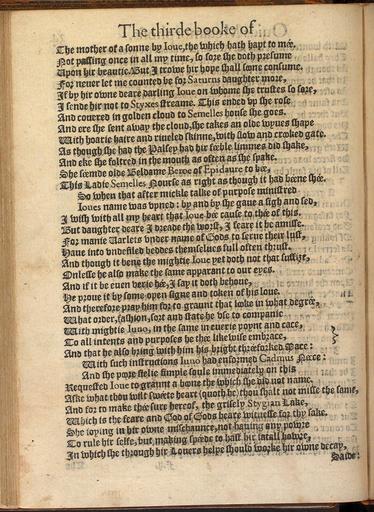 The thirde booke of
The mother of a sonne by Ioue, the which hath hapt to mée.
Not passing once in all my time, so sore she doth presume
Upon hir beautie. But I trowe hir hope shall sone consume.
For neuer let me counted be for Saturns daughter more,
If by hir owne deare darling Ioue on whome she trustes so sore,
I sende hir not to Styxes streame. This ended vp she rose
And couered in golden cloud to Semelles house she goes.
And ere she sent away the cloud, she takes an olde wyues shape
With hoarie haire and riueled skinne, with slow and croked gate.
As though she had the Palsey had hir féeble limmes did shake,
And eke she foltred in the mouth as often as she spake.
She séemde olde Beldame Beroe of Epidaure to bée,
This Ladie Semelles Nourse as right as though it had béene shée.
So when that after mickle talke of purpose ministred
Ioues name was vpned: by and by she gaue a sigh and sed,
I wish with all my heart that Ioue bée cause to thée of this.
But daughter deare I dreade the worst, I feare it be amisse.
For manie Varlets vnder name of Gods to serue their lust,
Haue into vndefiled beddes themselues full often thrust.
And though it bene the mightie Ioue yet doth not that suffise,
Onlesse he also make the same apparant to our eyes.
And if it be euen verie hée, I say it doth behoue,
He proue it by some open signe and token of his loue.
And therefore pray him for to graunt that loke in what degrée,
What order, fashion, sort and state he vse to companie
With mightie Iuno, in the same in euerie poynt and cace,
To all intents and purposes he thée likewise embrace,
And that he also bring with him his bright thréeforked Mace:
With such instructions Iuno had enformed Cadmus Néece:
And she poore sielie simple soule immediately on this
Requested Ioue to graunt a boone the which she did not name.
Aske what thou wilt swéete heart (quoth he) thou shalt not misse the same,
And for to make thée sure hereof, the grisely Stygian Lake,
Which is the feare and God of Gods beare witnesse for thy sake.
She ioying in hir owne mischaunce, not hauing any powre
To rule hir selfe, but making spéede to hast hir fatall howre,
In which she through hir Louers helpe should worke hir owne decay,
Saide: